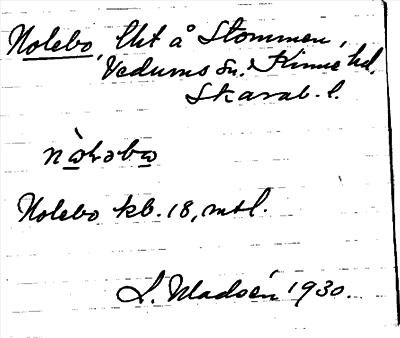 Nolebo, lht å Stommen,
Vedums sn. Kinne hd.
Skarab. l.
nò̀ləbə
Nolebo kb. 18, mtl.
L. Madsén 1930.